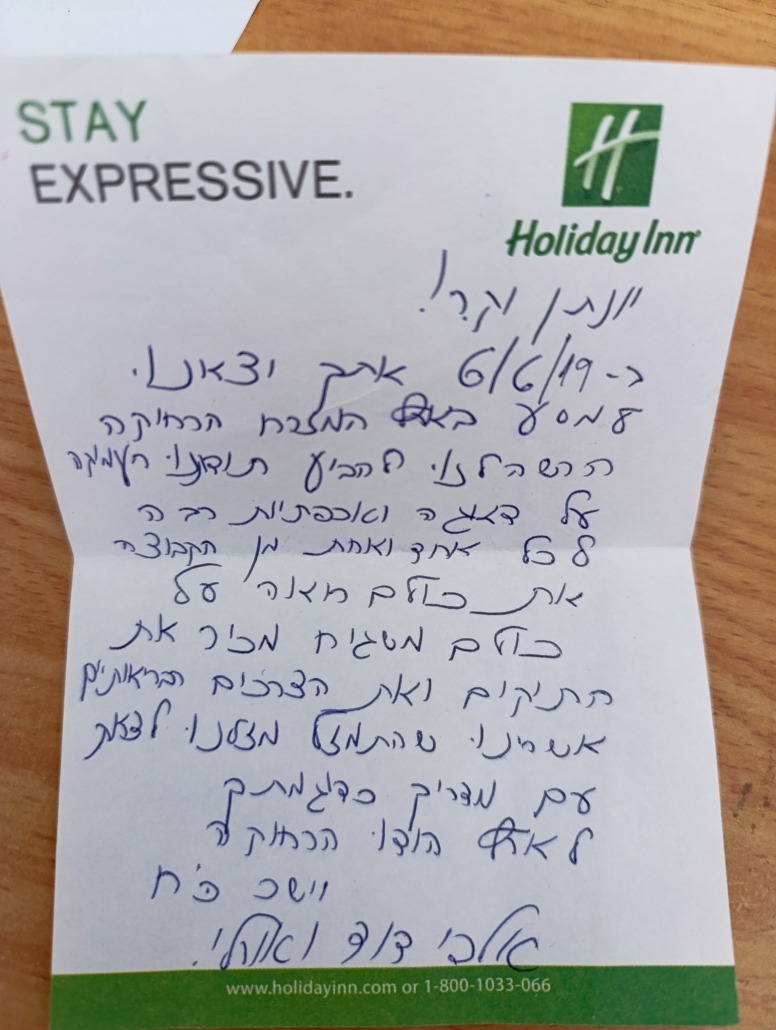 STAY
EXPRESSIVE.
Holiday Inn
יונתן יקר!
ב- 6/6/19 אתך יצאנו.
למסע המזרח הרחוקה
הרשה לנו להביע תודתנו העמוקה
על דאגה ואכפתיות רבה
לכל אחד ואחת מן הקבוצה
את כולם
כולם משגיח מכיר את
התיקים ואת הצרכים הבריאותיים
אשרינו שהתמזל מזלנו לצאת
עם מדריך כדוגמתך
הודו הרחוקה
ויישר כ"ח
דוד ואורלי.
www.holidayinn.com or 1-800-1033-066